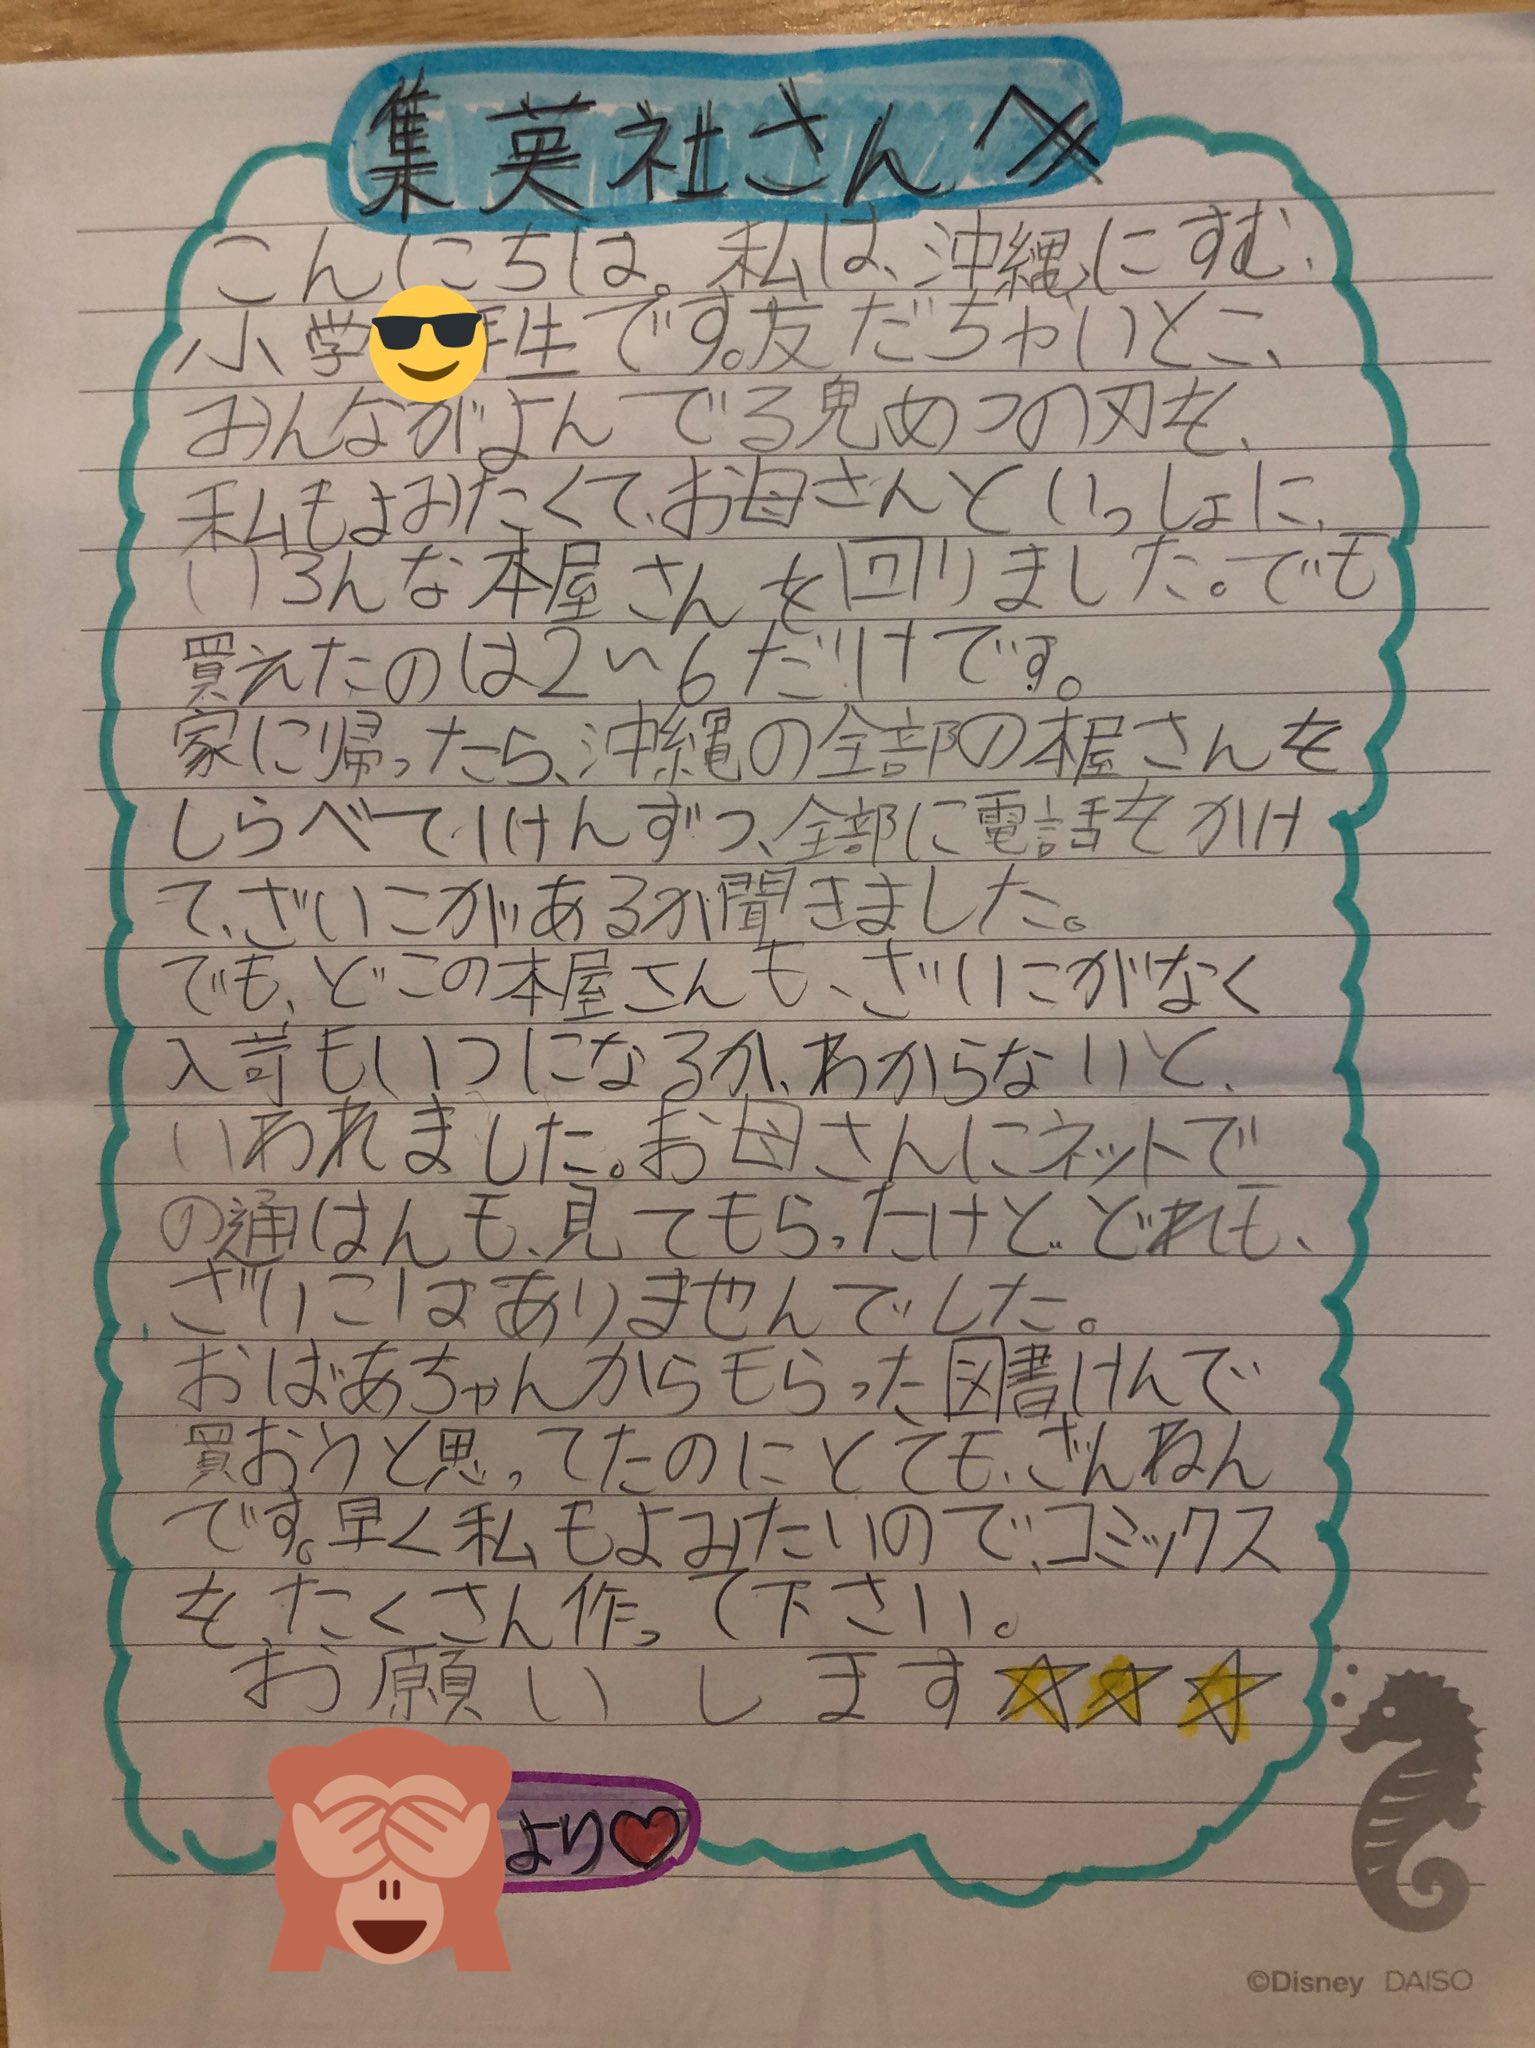 集英社さんへ
こんにちは。私は、沖縄にすむ、
小学年生です。友だちやいとこ、
みんながよんでる鬼めつの刃を、
私もよみたくて、お母さんといっしょに、
いろんな本屋さんを回りました。でも
買えたのは2〜6だけです。
家に帰ったら、沖縄の全部の本屋さんを
しらべて、1けんずつ、全部に電話をかけ
て、ざいこがあるか聞きました。
でも、どこの本屋さんも、ざいこがなく
入苛もいつになるか、わからないと、
いわれました。お母さんにネットで
の通はんも、見てもらったけど、どれも、
ざいこはありませんでした。
おばあちゃんからもらった図書けんで
買おうと思ってたのにとても、ざんねん
です。早く私もよみたいので、コミックス
を、たくさん作って下さい。
お願いします☆☆☆
より♥
©Disney DAISO